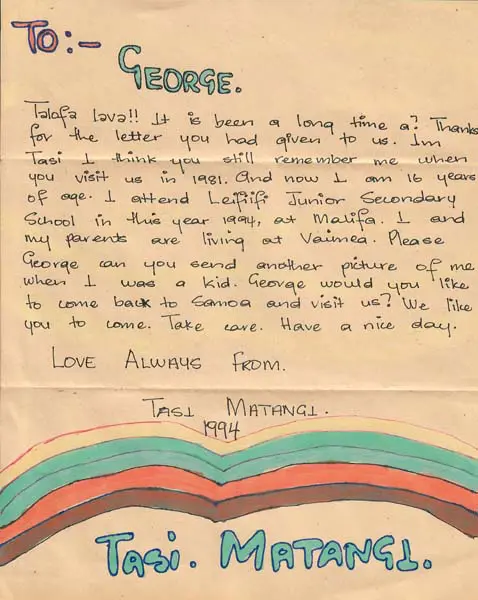 TO:-
GEORGE.
Talofa lava!! It is been a long time a? Thanks
for the letter you had given to us. Im
Tasi I think you still remember me when
you visit us in 1981. And now I am 16 years
of age. I attend Leifiifi Junior Secondary
School in this year 1994, at Malifa. I and
my parents are living at Vaimea. Please
George can you send another picture of me
when I was a kid. George would you like
to come back to Samoa and visit us? We like
you to come. Take care. Have a nice day.
LOVE ALWAYS FROM.
TASI MATANGI.
1994
TASI. MATANGI.